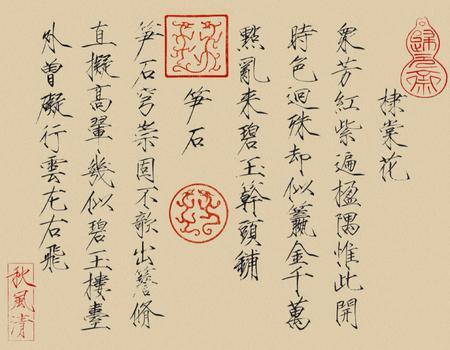 棣棠花
眾芳紅紫遍楹隅惟此開
時色迥殊却似籯金千萬
點亂来碧玉幹頭鋪
笋石
笋石穹崇固不欹出簷脩
直擬高翬幾似碧玉樓臺
外曾礙行雲左右飛
秋風清